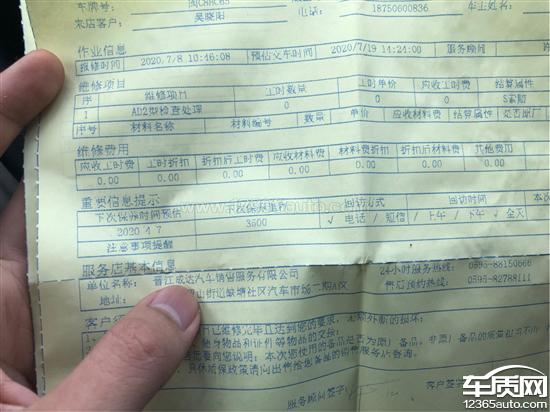 车牌号
18750600836
车主姓名
来店客户: 吴晓阳
电话:
作业信息
报修时间 2020/7/8 10:46:08 预估交车时间 2020/7/19 14:24:00 服务顾问
维修项目
序 维修项目 工时数量 工时单价 应收工时费 结算属性
1 AD2型检查处理 0 0 0.00 S索赔
序号 材料名称 材料编号 数量 单价 应收材料费 结算属性 是否原厂
维修费用
应收工时费 工时折扣 折扣后工时费 应收材料费 材料费折扣 折扣后材料费 其他费用
0.00 0.00 0.00 0.00 0.00 0.00 0.00
重要信息提示
下次保养时间预估 下次保养里程 回访方式 回访时间
2020/4/7 3500 √ 电话 / 短信 / 上午 / 下午 √ 全天
注意事项提醒
服务店基本信息
单位名称: 晋江成达汽车销售服务有限公司 24小时服务热线: 0595-88150666
地址: 山街道缺塘社区汽车市场二期A区 售后预约热线: 0595-82788111
客户
已维修完毕且达到您的要求,无额外新的损坏;
随身物品和证件等物品的交接;
服务顾问签字 客户签字
车质网
12365auto.com